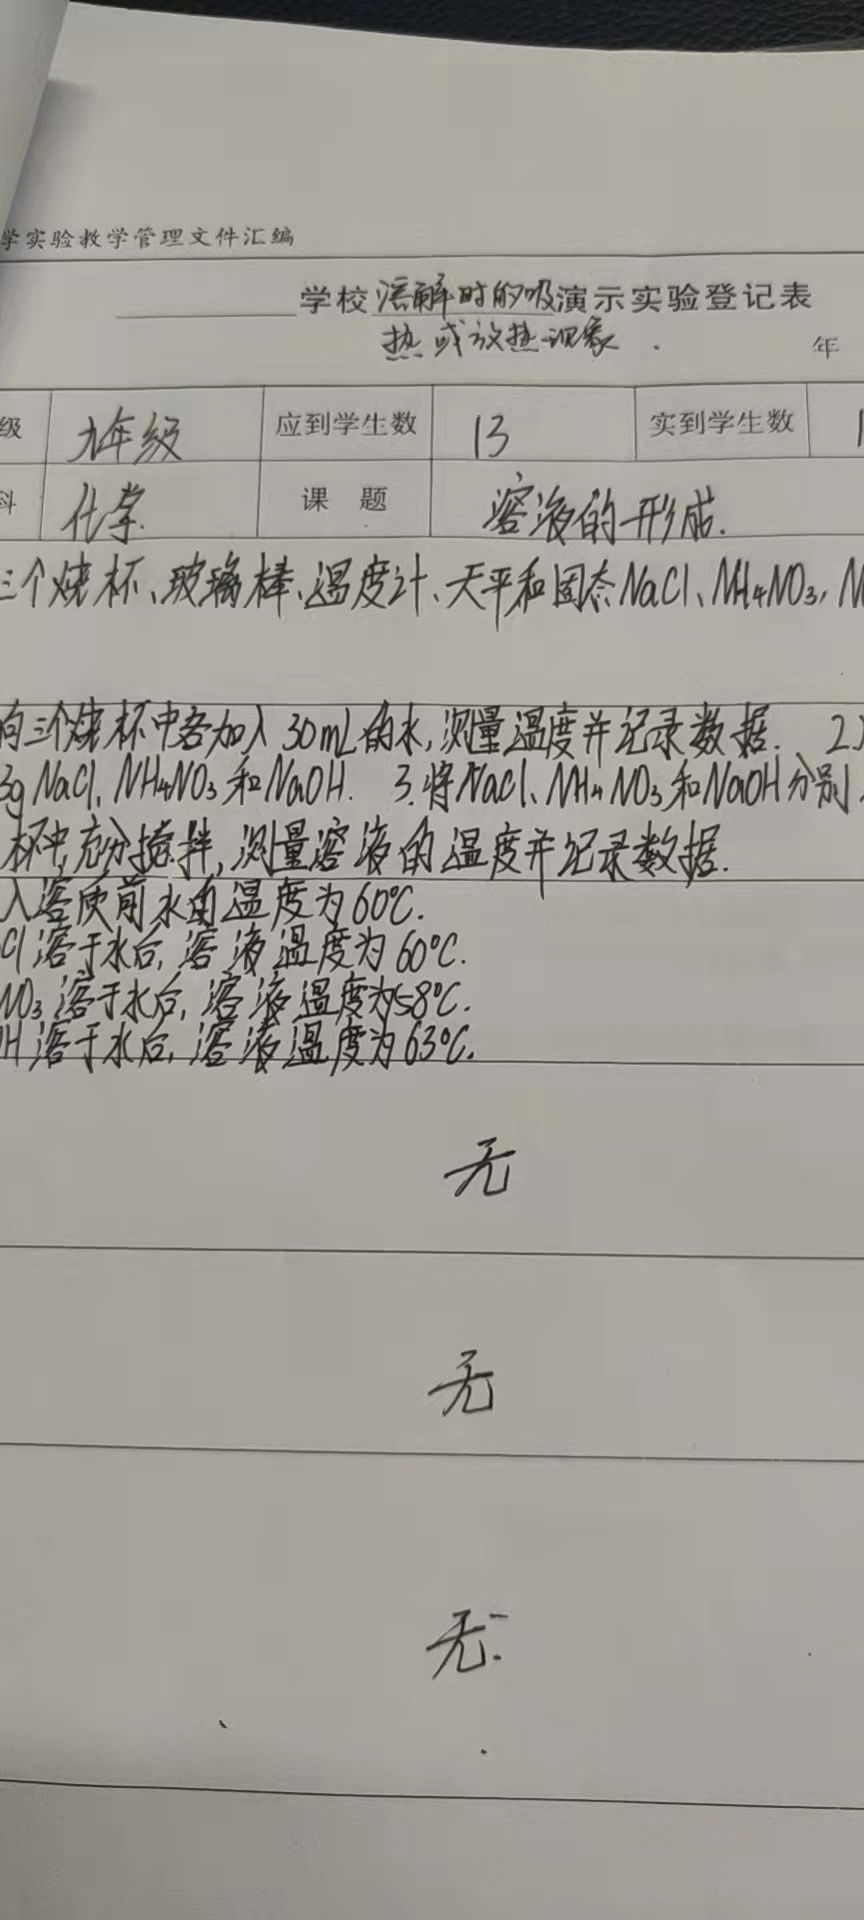 学实验教学管理文件汇编
学校溶解时的吸演示实验登记表
热或放热现象.
年
级 九年级 应到学生数 13 实到学生数 1
科 化学. 课题 溶液的形成.
三个烧杯、玻璃棒、温度计、天平和固态NaCl、NH₄NO₃、N
向三个烧杯中各加入30mL的水,测量温度并记录数据. 2.
3g NaCl、NH₄NO₃和NaOH. 3.将NaCl、NH₄NO₃和NaOH分别
杯中,充分搅拌,测量溶液的温度并记录数据.
入溶质前水的温度为60℃.
Cl溶于水后,溶液温度为60℃.
NO₃溶于水后,溶液温度为58℃.
H溶于水后,溶液温度为63℃.
无
无
无.